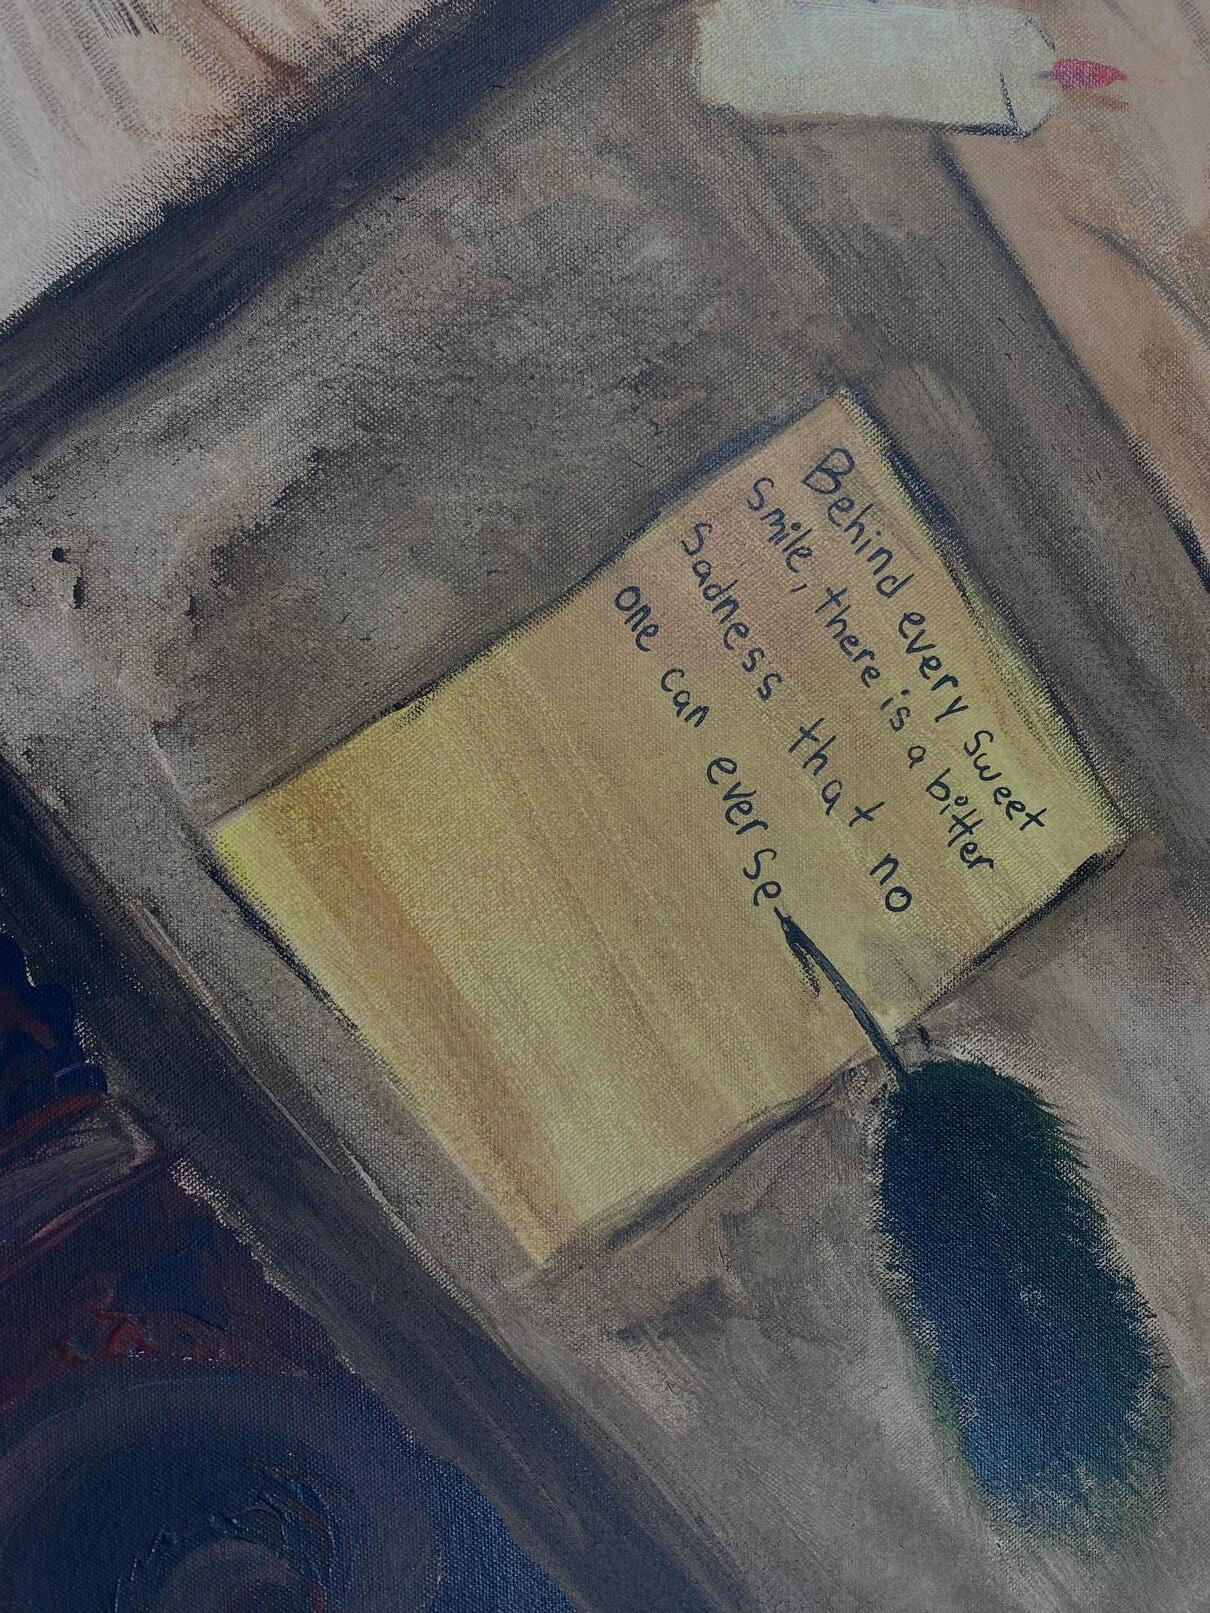 Behind every sweet
smile, there is a bitter
sadness that no
one can ever se